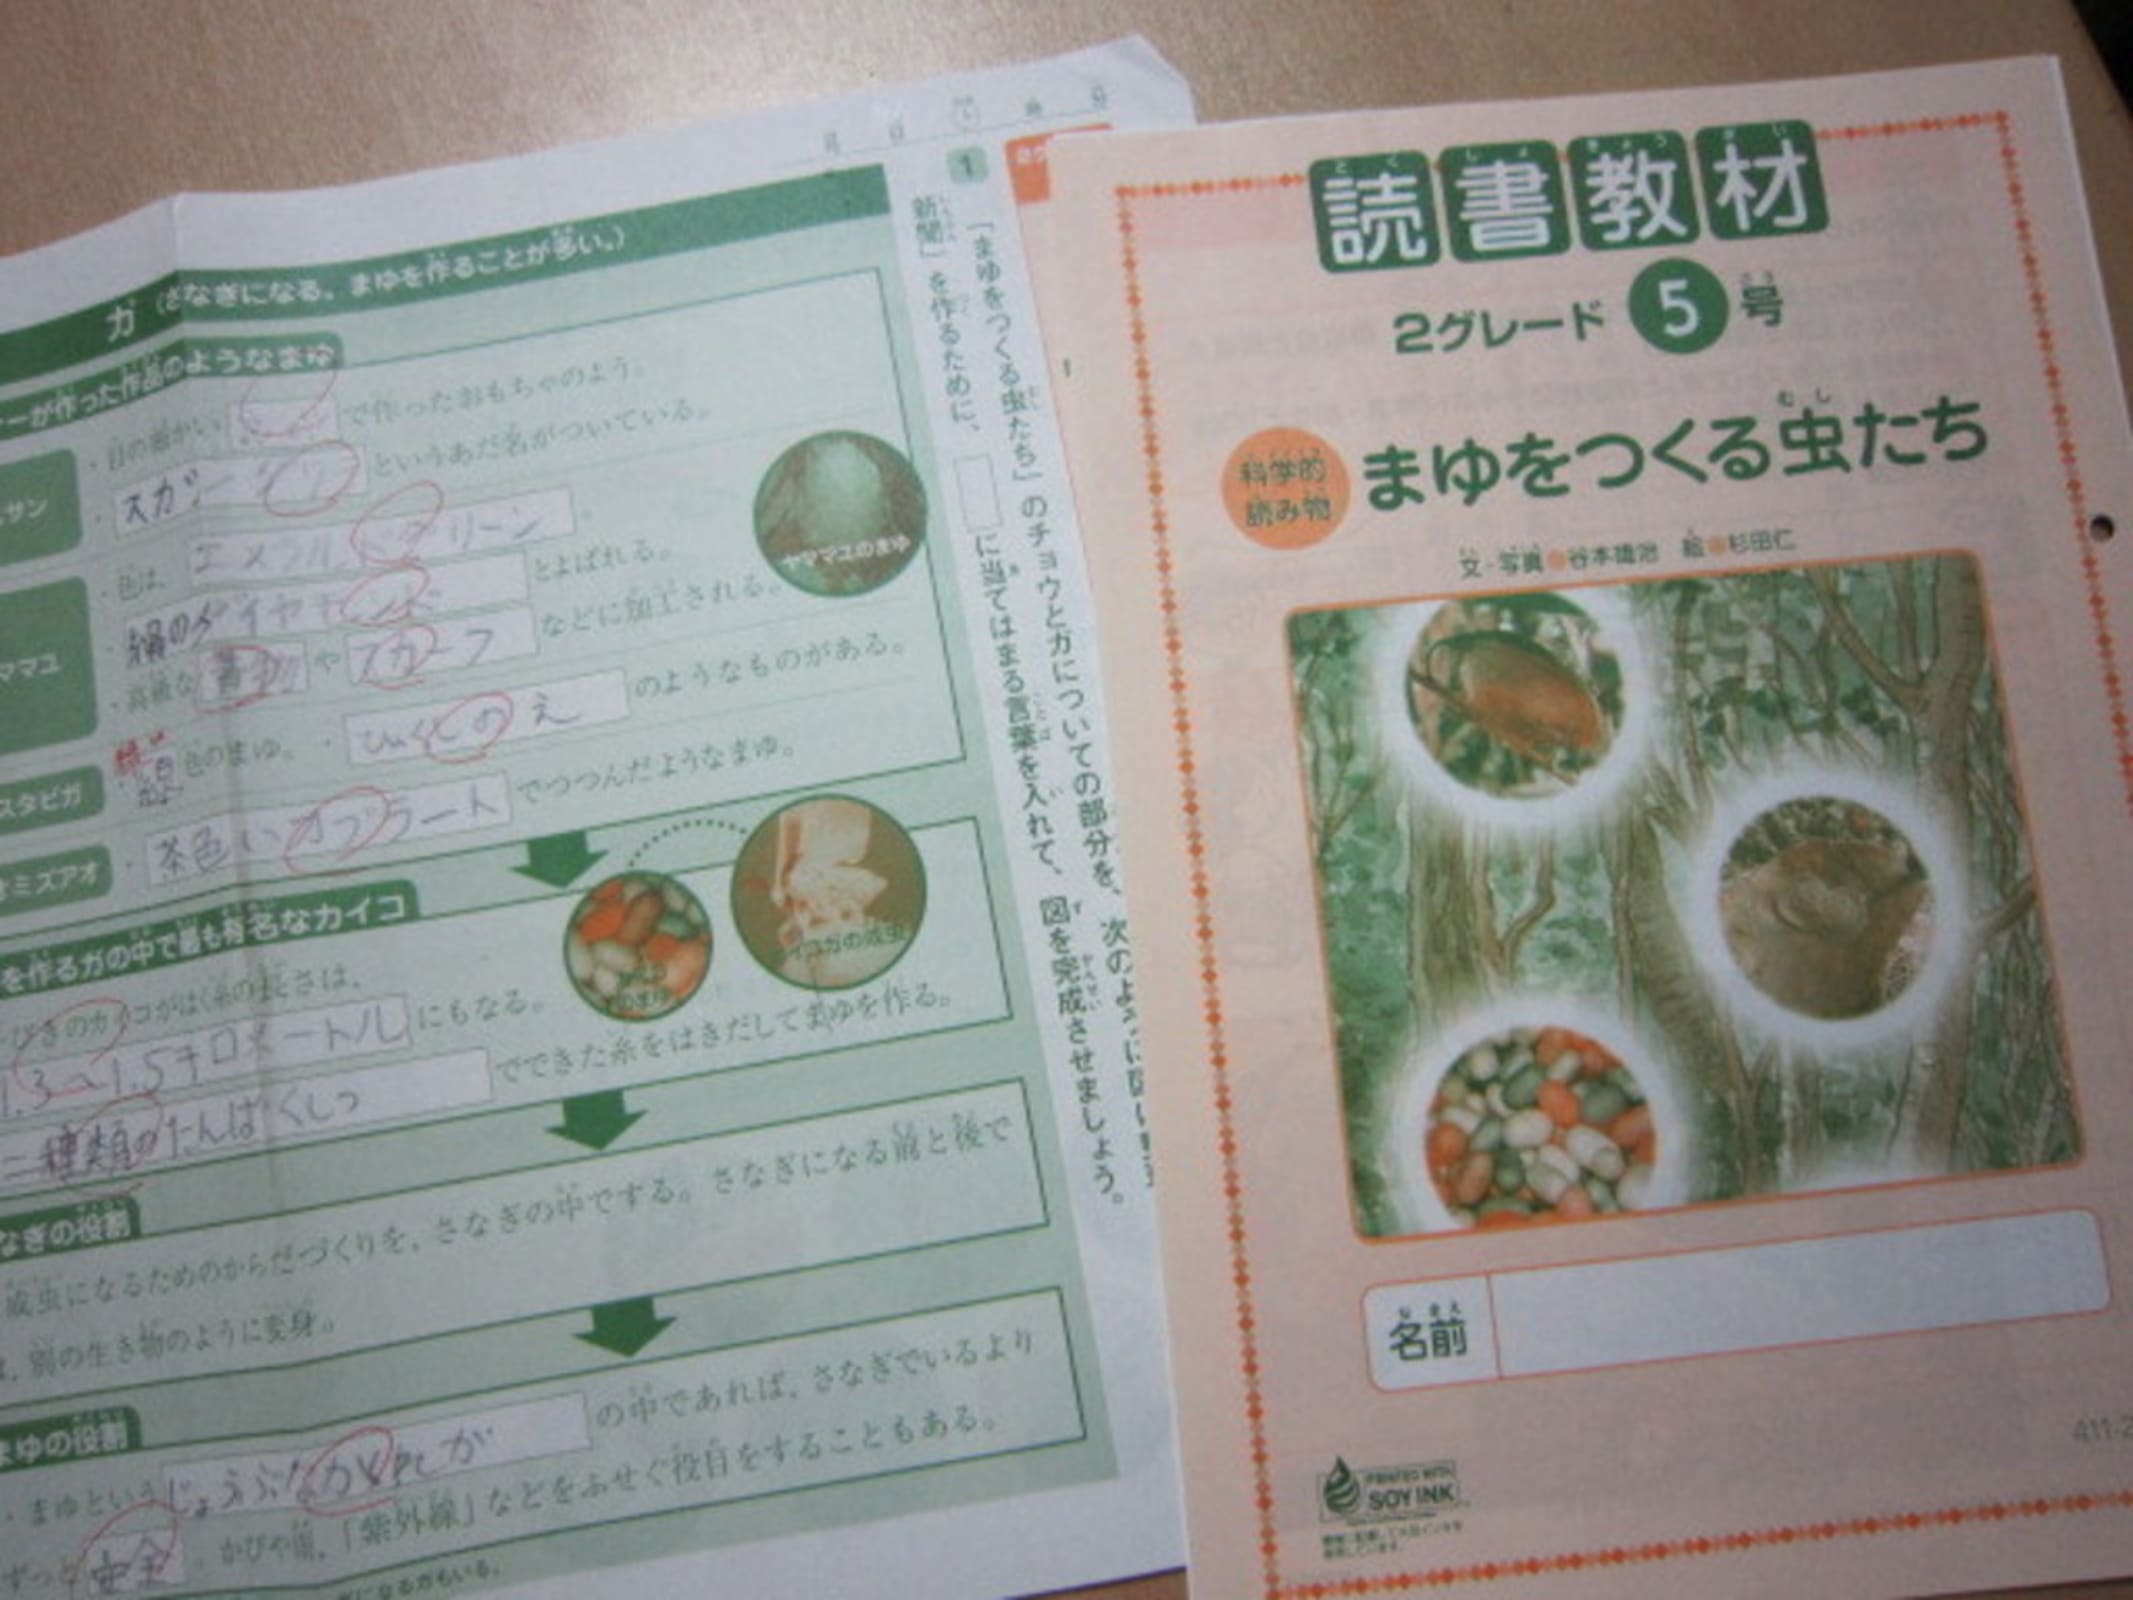 月 日
カ゛(さなぎになる。まゆを作ることが多い。)
ーが作った作品のようなまゆ
・目の細かい
で作ったおもちゃのよう。
・スカシダワラ
というあだ名がついている。
サン
・色は、エメラルドグリーン。
・絹のダイヤモンド
とよばれる。
・高級な着物やスカーフ
などに加工される。
ママユ
ヤママユのまゆ
緑
・緑色のまゆ。・ひしゃくのえ
のようなものがある。
スタビガ
・茶色いオブラート
でつつんだようなまゆ。
オミズアオ
を作るガの中で最も有名なカイコ
カイコがはく糸の長さは、
1.3〜1.5キロメートル
にもなる。
二種類のたんぱくしつ
でできた糸をはきだしてまゆを作る。
のまゆ
イコガの成虫
なぎの役割
成虫になるためのからだづくりを、さなぎの中でする。さなぎになる前と後で
は、別の生き物のように変身。
まゆの役割
・まゆという
の中であれば、さなぎでいるより
ずっと安全。かびや雨、「紫外線」などをふせぐ役目をすることもある。
になるガもいる。
1
「まゆをつくる虫たち」のチョウとガについての部分を、次のように図
新聞」を作るために、
に当てはまる言葉を入れて、図を完成させましょう。
読書教材
2グレード 5号
科学的
読み物
まゆをつくる虫たち
文・写真●谷本雄治 絵●杉田仁
名前
411-2
PRINTED WITH
SOY INK